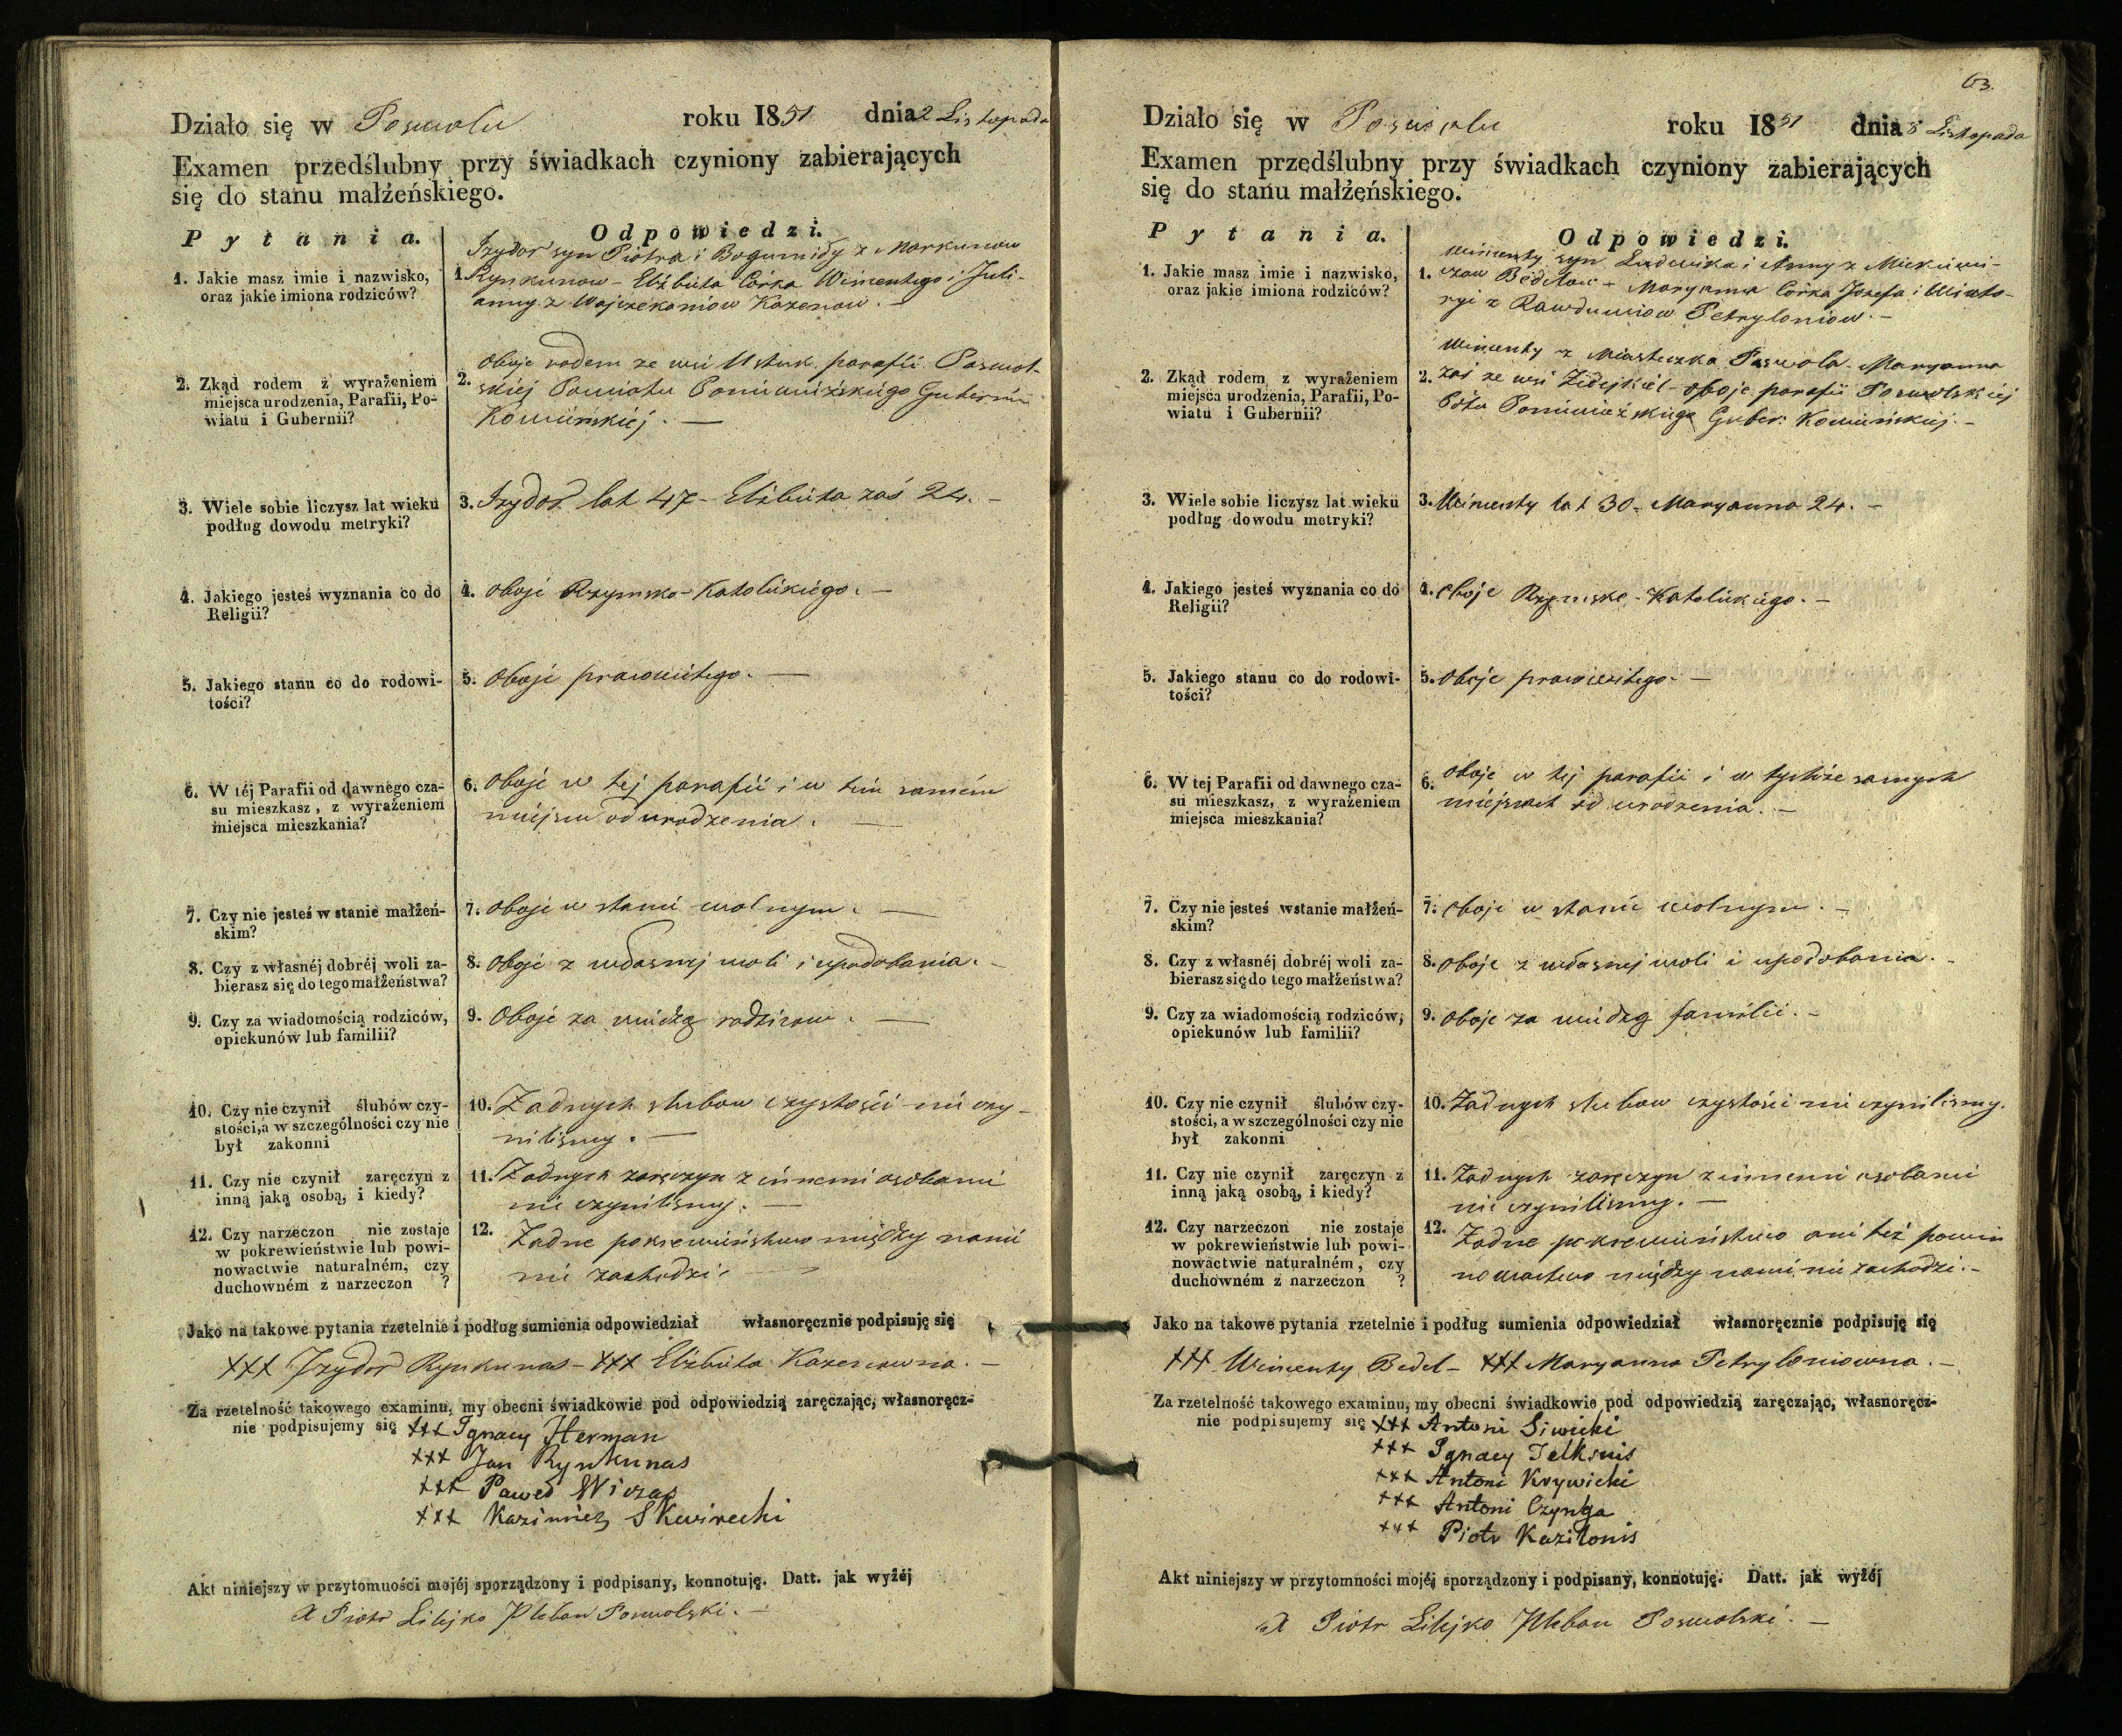 Działo się w Poswolu roku 1851 dnia 2 Listopada
Examen przedślubny przy świadkach czyniony zabierających
się do stanu małżeńskiego.
Pytania. Odpowiedzi.
1. Jakie masz imie i nazwisko,
oraz jakie imiona rodziców?
Izydor syn Piotra i Bogumiły z Markunow
1. Rynkunow – Elżbieta Córka Wincentego i Juli-
anny z Wojczekaniow Kazenow. –
2. Zkąd rodem z wyrażeniem
miejsca urodzenia, Parafii, Po-
wiatu i Gubernii?
oboje rodem ze wsi Ustuk parafii Poswol-
2. skiej Powiatu Poniewiéżskiego Gubernii
Kowieńskiej. –
3. Wiele sobie liczysz lat wieku
podług dowodu metryki?
3. Izydor lat 47 – Elżbieta zaś 24. –
4. Jakiego jesteś wyznania co do
Religii?
4. oboje Rzymsko-Katolickiego. –
5. Jakiego stanu co do rodowi-
tości?
5. oboje prawowitego. –
6. W téj Parafii od dawnego cza-
su mieszkasz, z wyrażeniem
miejsca mieszkania?
6. oboje w tej parafii i w tém samém
miejscu od urodzenia. –
7. Czy nie jesteś w stanie małżeń-
skim?
7. oboje w stanie wolnym. –
8. Czy z własnéj dobréj woli za-
bierasz się do tego małżeństwa?
8. oboje z własnej woli i upodobania. –
9. Czy za wiadomością rodziców,
opiekunów lub familii?
9. Oboje za wiedzą rodzicow. –
10. Czy nie czynił ślubów czy-
stości, a w szczególności czy nie
był zakonni
10. Żadnych slubow czystości nie czy-
nilismy. –
11. Czy nie czynił zaręczyn z
inną jaką osobą, i kiedy?
11. Żadnych zaręczyn z innemi osobami
nie czynilismy. –
12. Czy narzeczon nie zostaje
w pokrewieństwie lub powi-
nowactwie naturalném, czy
duchowném z narzeczon ?
12. Żadne pokrewieństwo między nami
nie zachodzi. –
Jako na takowe pytania rzetelnie i podług sumienia odpowiedział własnoręcznie podpisuję się
+++ Izydor Rynkunas – +++ Elżbieta Kazenowna. –
Za rzetelność takowego examinu, my obecni świadkowie pod odpowiedzią zaręczając, własnoręcz-
nie podpisujemy się +++ Ignacy Herman
+++ Jan Rynkunas
+++ Paweł Wiczas
+++ Kazimierz Skwirecki
Akt niniejszy w przytomności mojéj sporządzony i podpisany, konnotuję. Datt. jak wyżéj
X Piotr Lilejko Pleban Poswolski. –
63.
Działo się w Poswolu roku 1851 dnia 8 Listopada
Examen przedślubny przy świadkach czyniony zabierających
się do stanu małżeńskiego.
Pytania. Odpowiedzi.
1. Jakie masz imie i nazwisko,
oraz jakie imiona rodziców?
Wincenty syn Ludwika i Anny z Mickiewi-
1. czow Bedelow – Maryanna Córka Jozefa i Wikto-
ryi z Rawduniow Petryloniow. –
2. Zkąd rodem z wyrażeniem
miejsca urodzenia, Parafii, Po-
wiatu i Gubernii?
Wincenty z Miasteczka Poswola – Maryanna
2. zaś ze wsi Żidejkiel – oboje parafii Poswolskiej
Pttu Poniewieżskiego Guber: Kowieńskiej. –
3. Wiele sobie liczysz lat wieku
podług dowodu metryki?
3. Wincenty lat 30 – Maryanna 24. –
4. Jakiego jesteś wyznania co do
Religii?
4. oboje Rzymsko-Katolickiego. –
5. Jakiego stanu co do rodowi-
tości?
5. oboje prawowitego. –
6. W téj Parafii od dawnego cza-
su mieszkasz, z wyrażeniem
miejsca mieszkania?
6. oboje w tej parafii i w tychże samych
miejscach od urodzenia. –
7. Czy nie jesteś wstanie małżeń-
skim?
7. oboje w stanie wolnym. –
8. Czy z własnéj dobréj woli za-
bierasz się do tego małżeństwa?
8. oboje z własnej woli i upodobania. –
9. Czy za wiadomością rodziców,
opiekunów lub familii?
9. oboje za wiedzą familii. –
10. Czy nie czynił ślubów czy-
stości, a w szczególności czy nie
był zakonni
10. Żadnych slubow czystości nie czynilismy.
11. Czy nie czynił zaręczyn z
inną jaką osobą, i kiedy?
11. Żadnych zaręczyn z innemi osobami
nie czynilismy. –
12. Czy narzeczon nie zostaje
w pokrewieństwie lub powi-
nowactwie naturalném, czy
duchowném z narzeczon ?
12. Żadne pokrewieństwo ani też powin
nowactwo między nami nie zachodzi. –
Jako na takowe pytania rzetelnie i podług sumienia odpowiedział własnoręcznie podpisuję się
+++ Wincenty Bedel – +++ Maryanna Petryloniowna. –
Za rzetelność takowego examinu, my obecni świadkowie pod odpowiedzią zaręczając, własnoręcz-
nie podpisujemy się +++ Antoni Siwicki
+++ Ignacy Jelksnis
+++ Antoni Krywicki
+++ Antoni Czynga
+++ Piotr Kazilonis
Akt niniejszy w przytomności mojéj sporządzony i podpisany, konnotuję. Datt. jak wyżéj
X Piotr Lilejko Pleban Poswolski. –